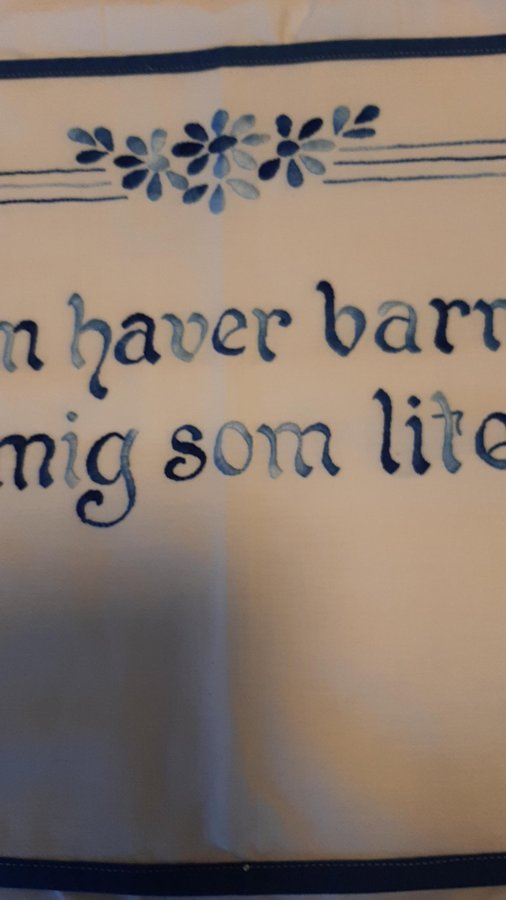 n haver barn
mig som lite